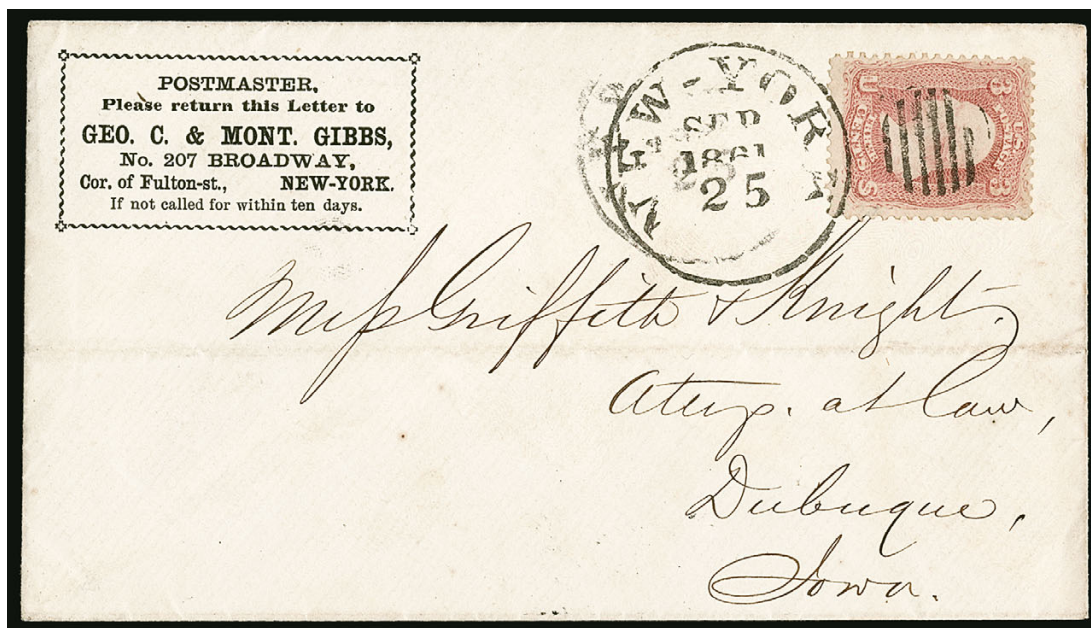 POSTMASTER,
Please return this Letter to
GEO. C. & MONT. GIBBS,
No. 207 BROADWAY,
Cor. of Fulton-st., NEW-YORK.
If not called for within ten days.
NEW-YORK
SEP
1861
25
U.S. POSTAGE
3 3
THREE CENTS
U S
Mess Griffith & Knight,
Attys. at Law,
Dubuque,
Iowa.